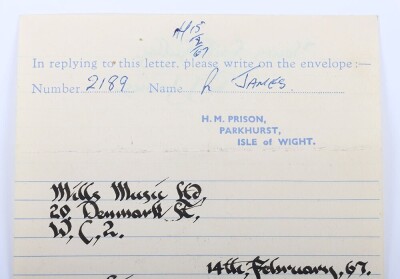 H 15
2
67
In replying to this letter, please write on the envelope:—
Number 2189 Name R JAMES.
H. M. PRISON,
PARKHURST,
ISLE of WIGHT.
Mills Music Ltd,
20 Denmark St,
W, C, 2.
14th, February, 67.